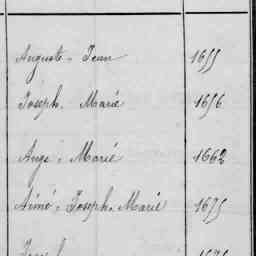 Auguste, Jean 1655
Joseph, Marie 1656
Ange, Marie 1662
Aimé, Joseph, Marie 1675